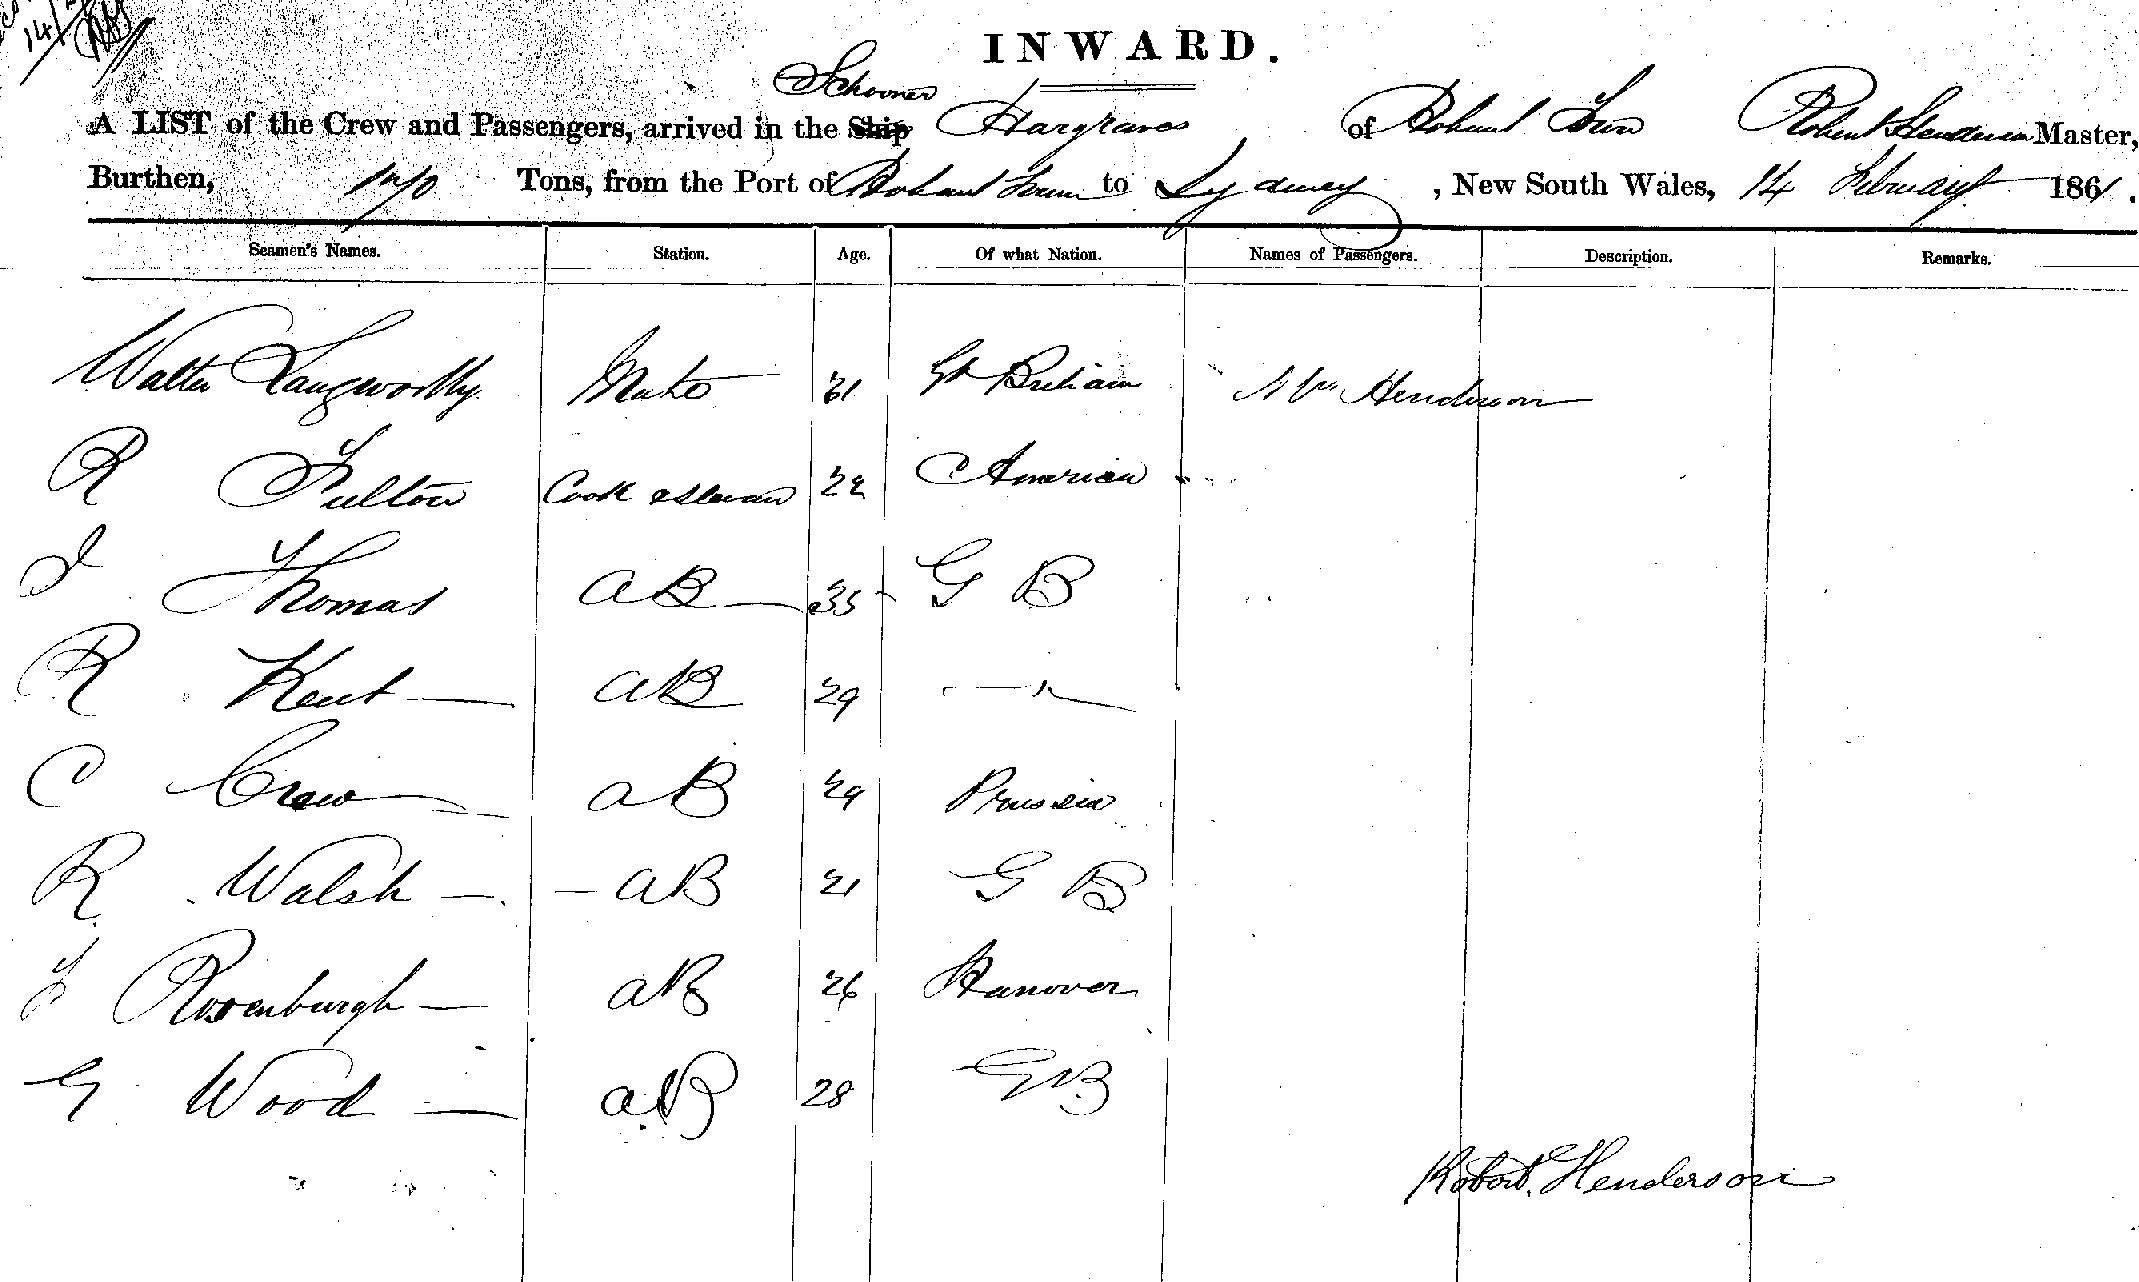 14/2
INWARD.
Schooner
A LIST of the Crew and Passengers, arrived in the Ship Hargraves of Hobart Town Robert Henderson Master,
Burthen, Tons, from the Port of Hobart Town to Sydney, New South Wales, 14 February 1861.
Seamen's Names. Station. Age. Of what Nation. Names of Passengers. Description. Remarks.
Walter Langworthy Mate 31 Gt Britain Mrs Henderson
R Fulton Cook & Steward 22 American
J Thomas AB 35 G B
R Kent AB 29
C Crew AB 29 Prussia
R Walsh AB 21 G B
F Rosenburgh AB 26 Hanover
G Wood AB 28 G B
Robert Henderson